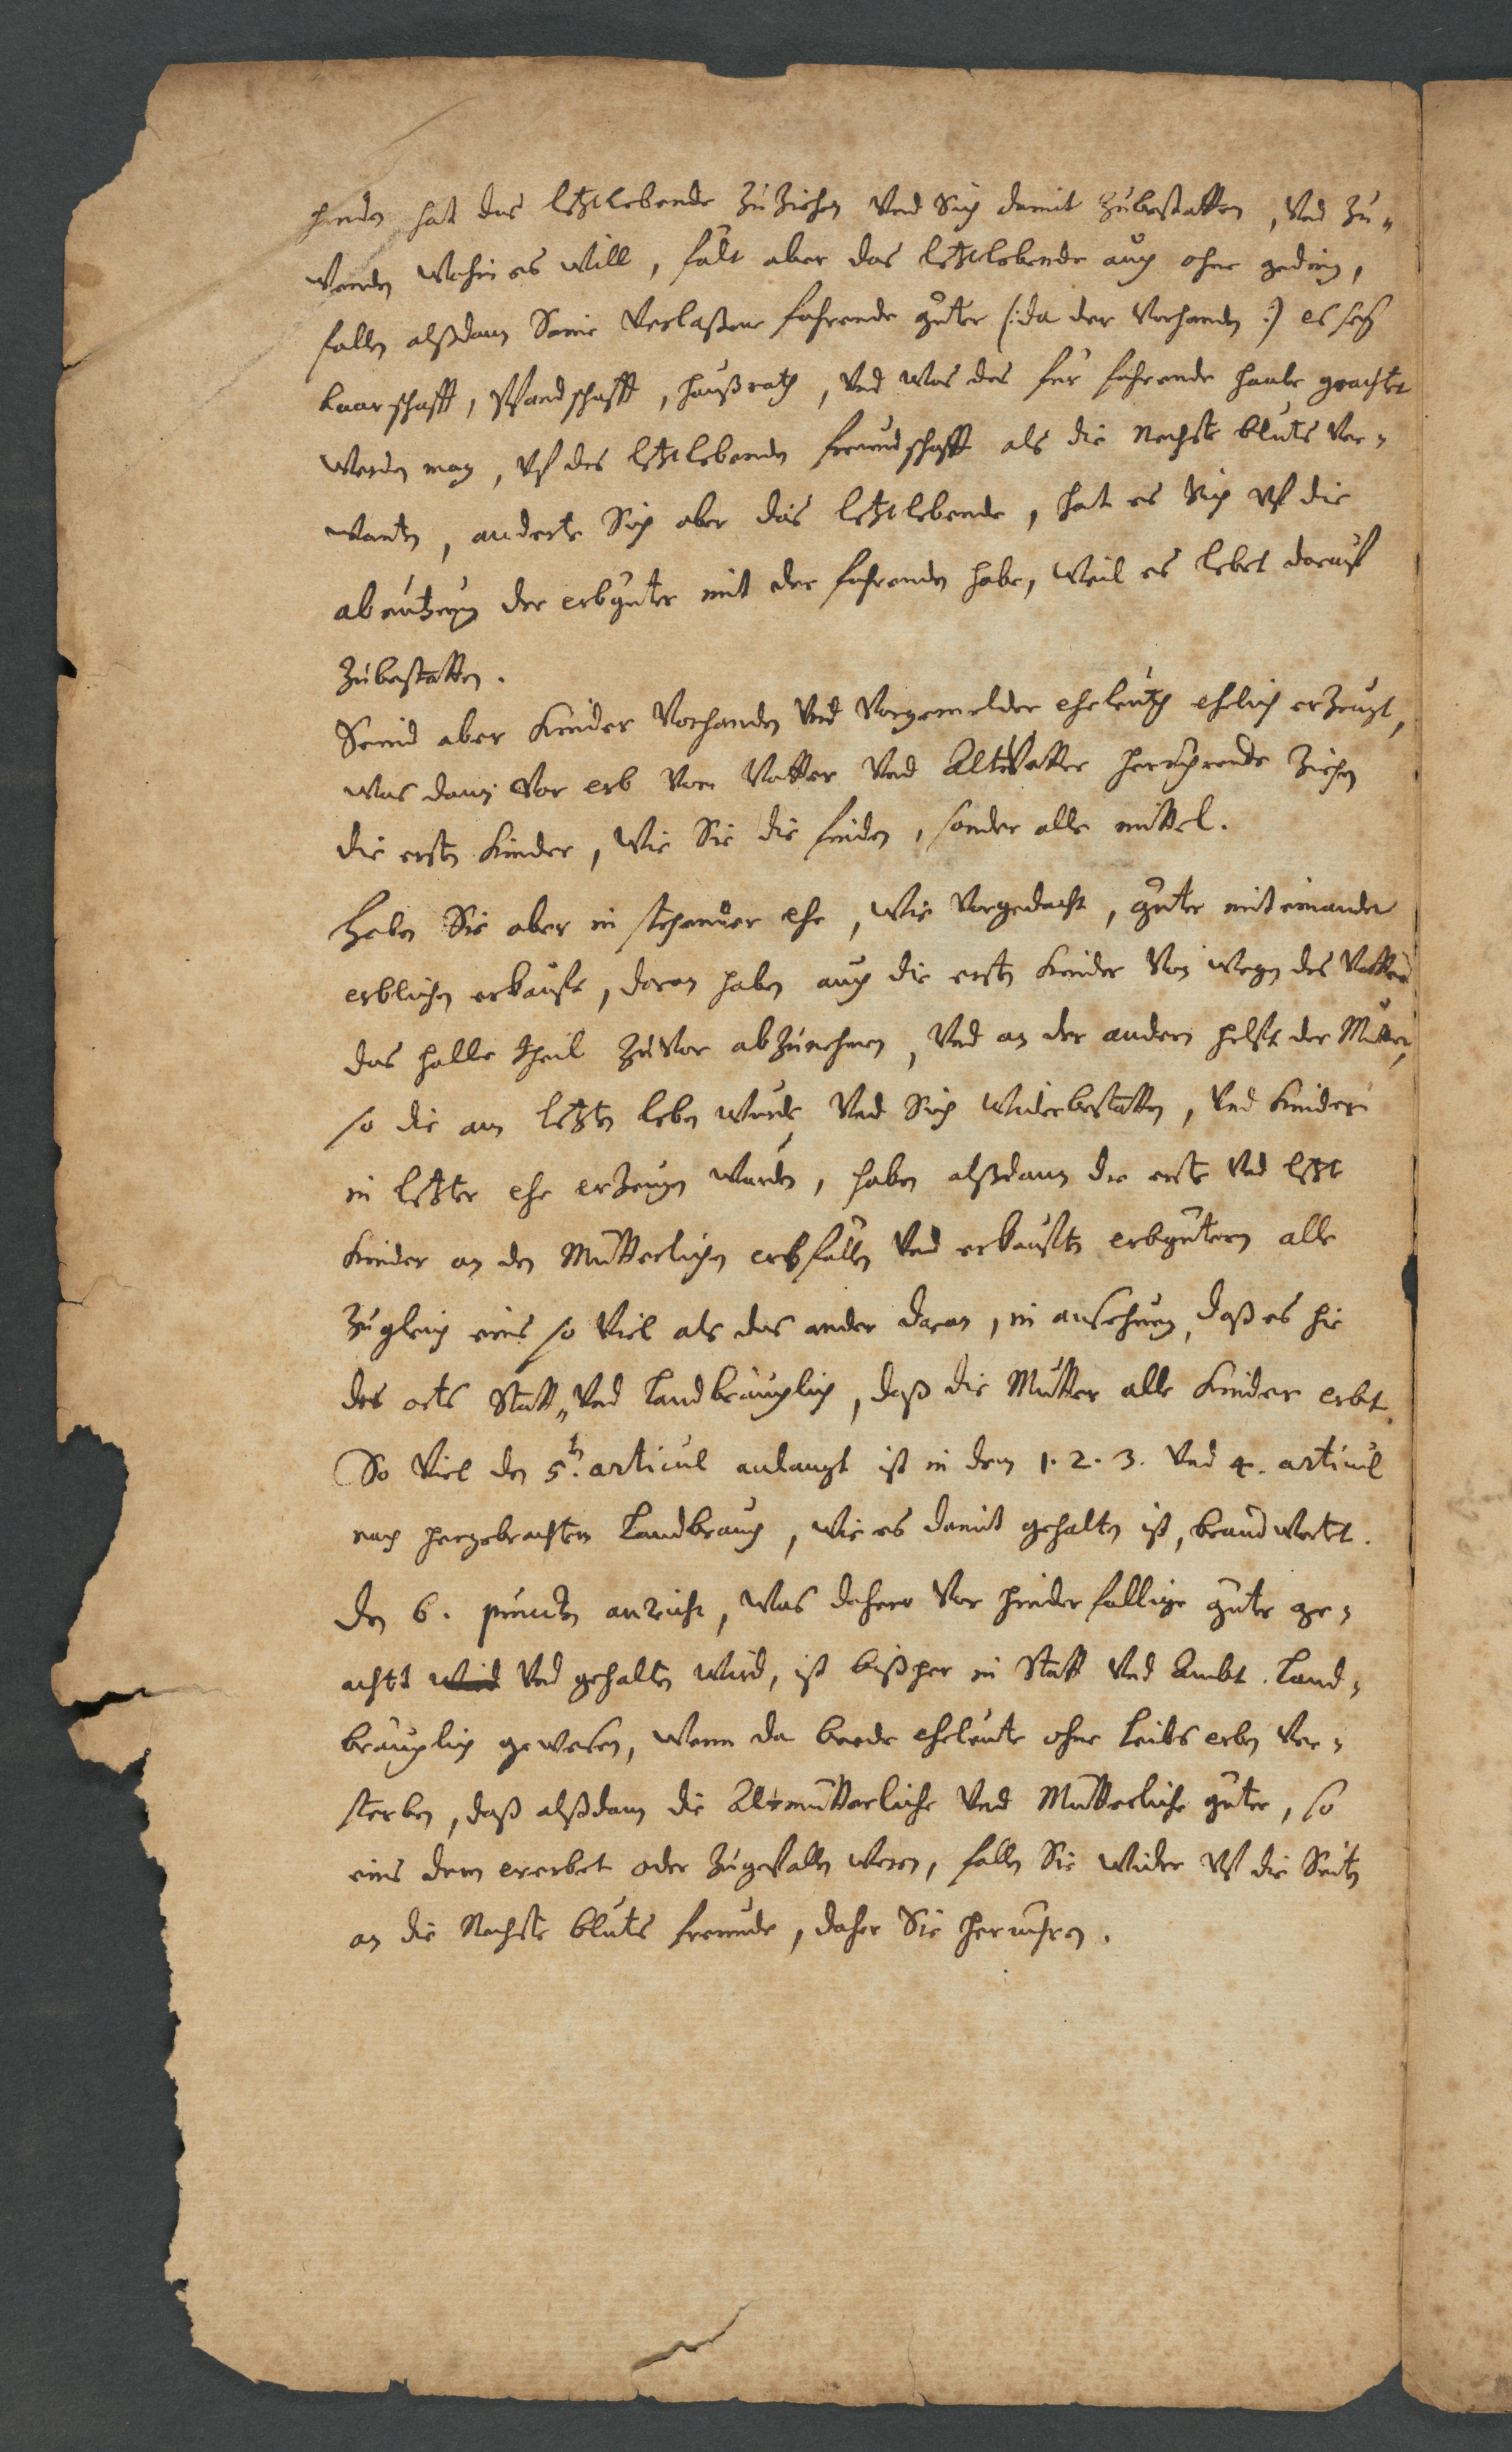 handen hat das letztlebende zuziehen Vnd Sich damit zubestatten, Vnd zu„
Wenden Wohin es Will, fält aber das letztlebende auch ohne geding,
fallen alßdann Seine Verlaßene fahrende güter (: da der Vorhanden :) es seÿ
baarschafft, Pfandschafft, haußrath, Vnd Was des für fahrende haabe geachtet
Werden mag, Vf des letztlebenden freundschafft als die Nechste bluts Ver-
wanten, anderte Sich aber das letztlebende, hat es Sich Vf die
abnutzung der erbgüter mit der fahrenden habe, Weil es lebet darauf
zubestatten.
Seind aber Kinder Vorhanden Vnd Vorgemelder eheleuth ehelich erzeugt,
Was dann Vor erb Vom Vatter Vnd AltVatter herrührende ziehen
die ersten Kinder, Wie Sie die finden, sonder alle mittel.
Haben Sie aber in stehender ehe, Wie Vorgedacht, güter miteinander
erblichen erkauft, daran haben auch die ersten Kinder Von Wegen des Vatters
das halbe theil zuVor abzunehmen, Vnd an der andern helft der Mutter,
so die am letzten leben Wurde Vnd Sich Widerbestatten, Vnd Kinder
in letzter ehe erzeugen Wurden, haben alßdann die erste Vnd letzt
Kinder an den Mütterlichen erbfällen Vnd erkauften erbgütern alle
zugleich eins so Viel als das ander daran, in ansehung, daß es hie
des orts Statt„ Vnd Landbräuchlich, daß die Mutter alle Kinder erbt.
So Viel den 5.n articul anlangt ist in dem 1. 2. 3. Vnd 4. articul
nach hergebrachten Landbrauch, Wie es damit gehalten ist, beandWertet.
Den 6. puncten anzeicht, Was dahero Vor hinderfallige güter ge-
achtet Wird Vnd gehalten Wird, ist bißher in Statt Vnd Ambt Land-
bräuchlich geWesen, Wenn da beede eheleute ohne Leibs erben Ver-
sterben, daß alßdann die Altmütterliche Vnd Mütterliche güter, so
eins dem ererbet oder zugefallen Weren, fallen Sie Wider Vf die Seiten
an die Nechste bluts freunde, daher Sie herrühren.